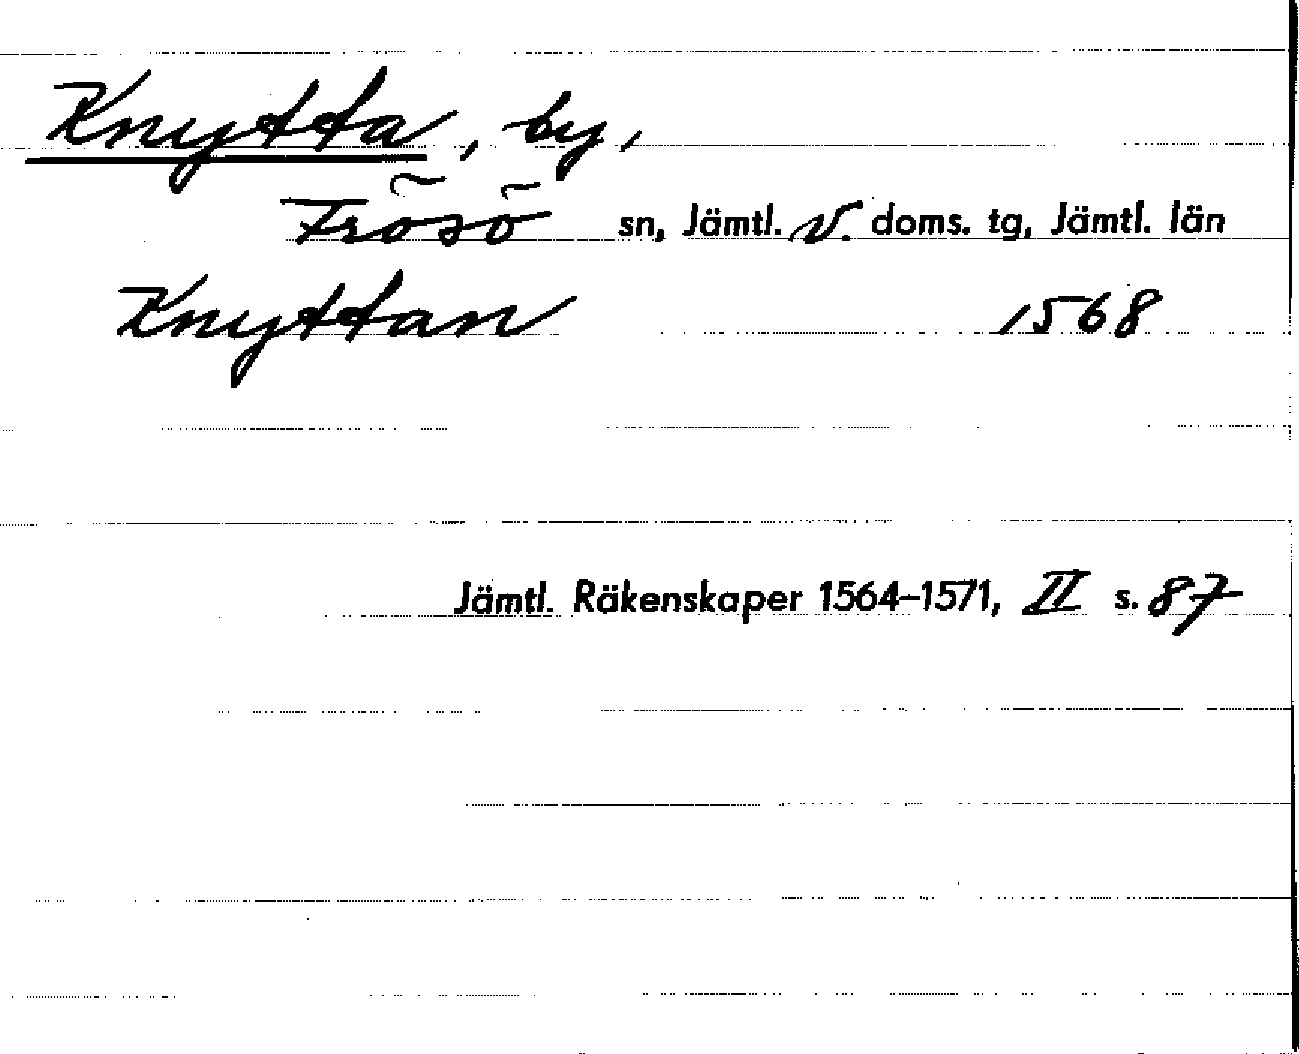 Knytta, by,
Frösö sn, Jämtl. v. doms. tg, Jämtl. län
Knyttan 1568
Jämtl. Räkenskaper 1564–1571, II s. 87